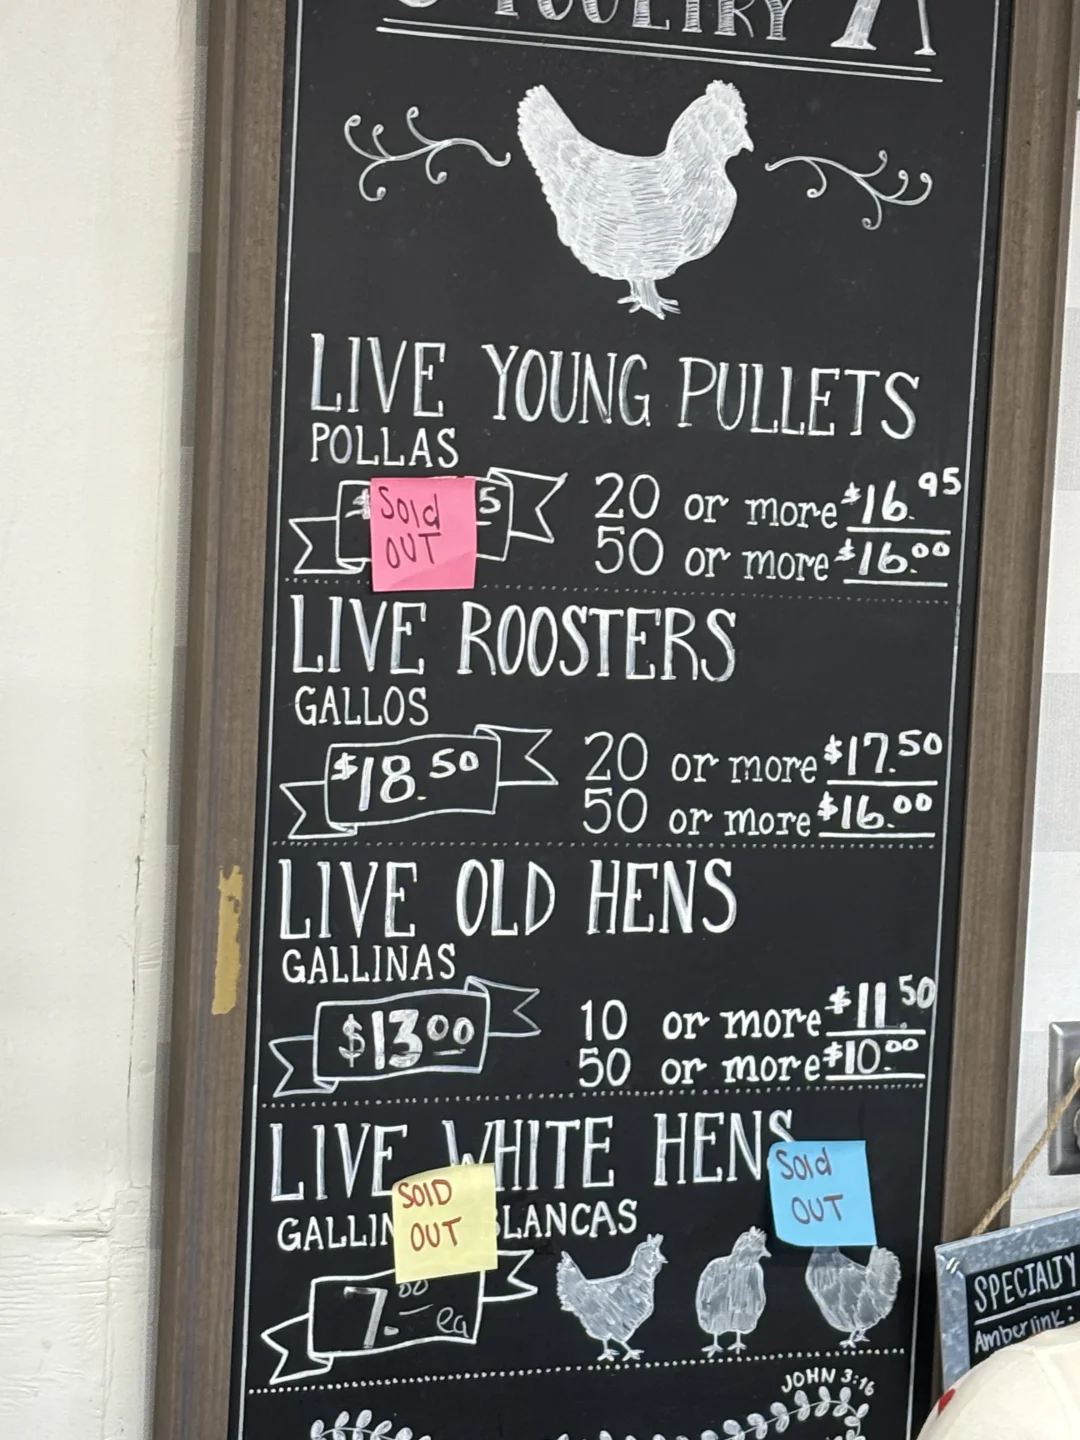 POULTRY
LIVE YOUNG PULLETS
POLLAS
Sold
OUT
20 or more $16.95
50 or more $16.00
LIVE ROOSTERS
GALLOS
$18.50
20 or more $17.50
50 or more $16.00
LIVE OLD HENS
GALLINAS
$13.00
10 or more $11.50
50 or more $10.00
LIVE WHITE HENS
BLANCAS
SOlD
OUT
Sold
OUT
7.00 ea
JOHN 3:16
SPECIALTY
Amberlink: